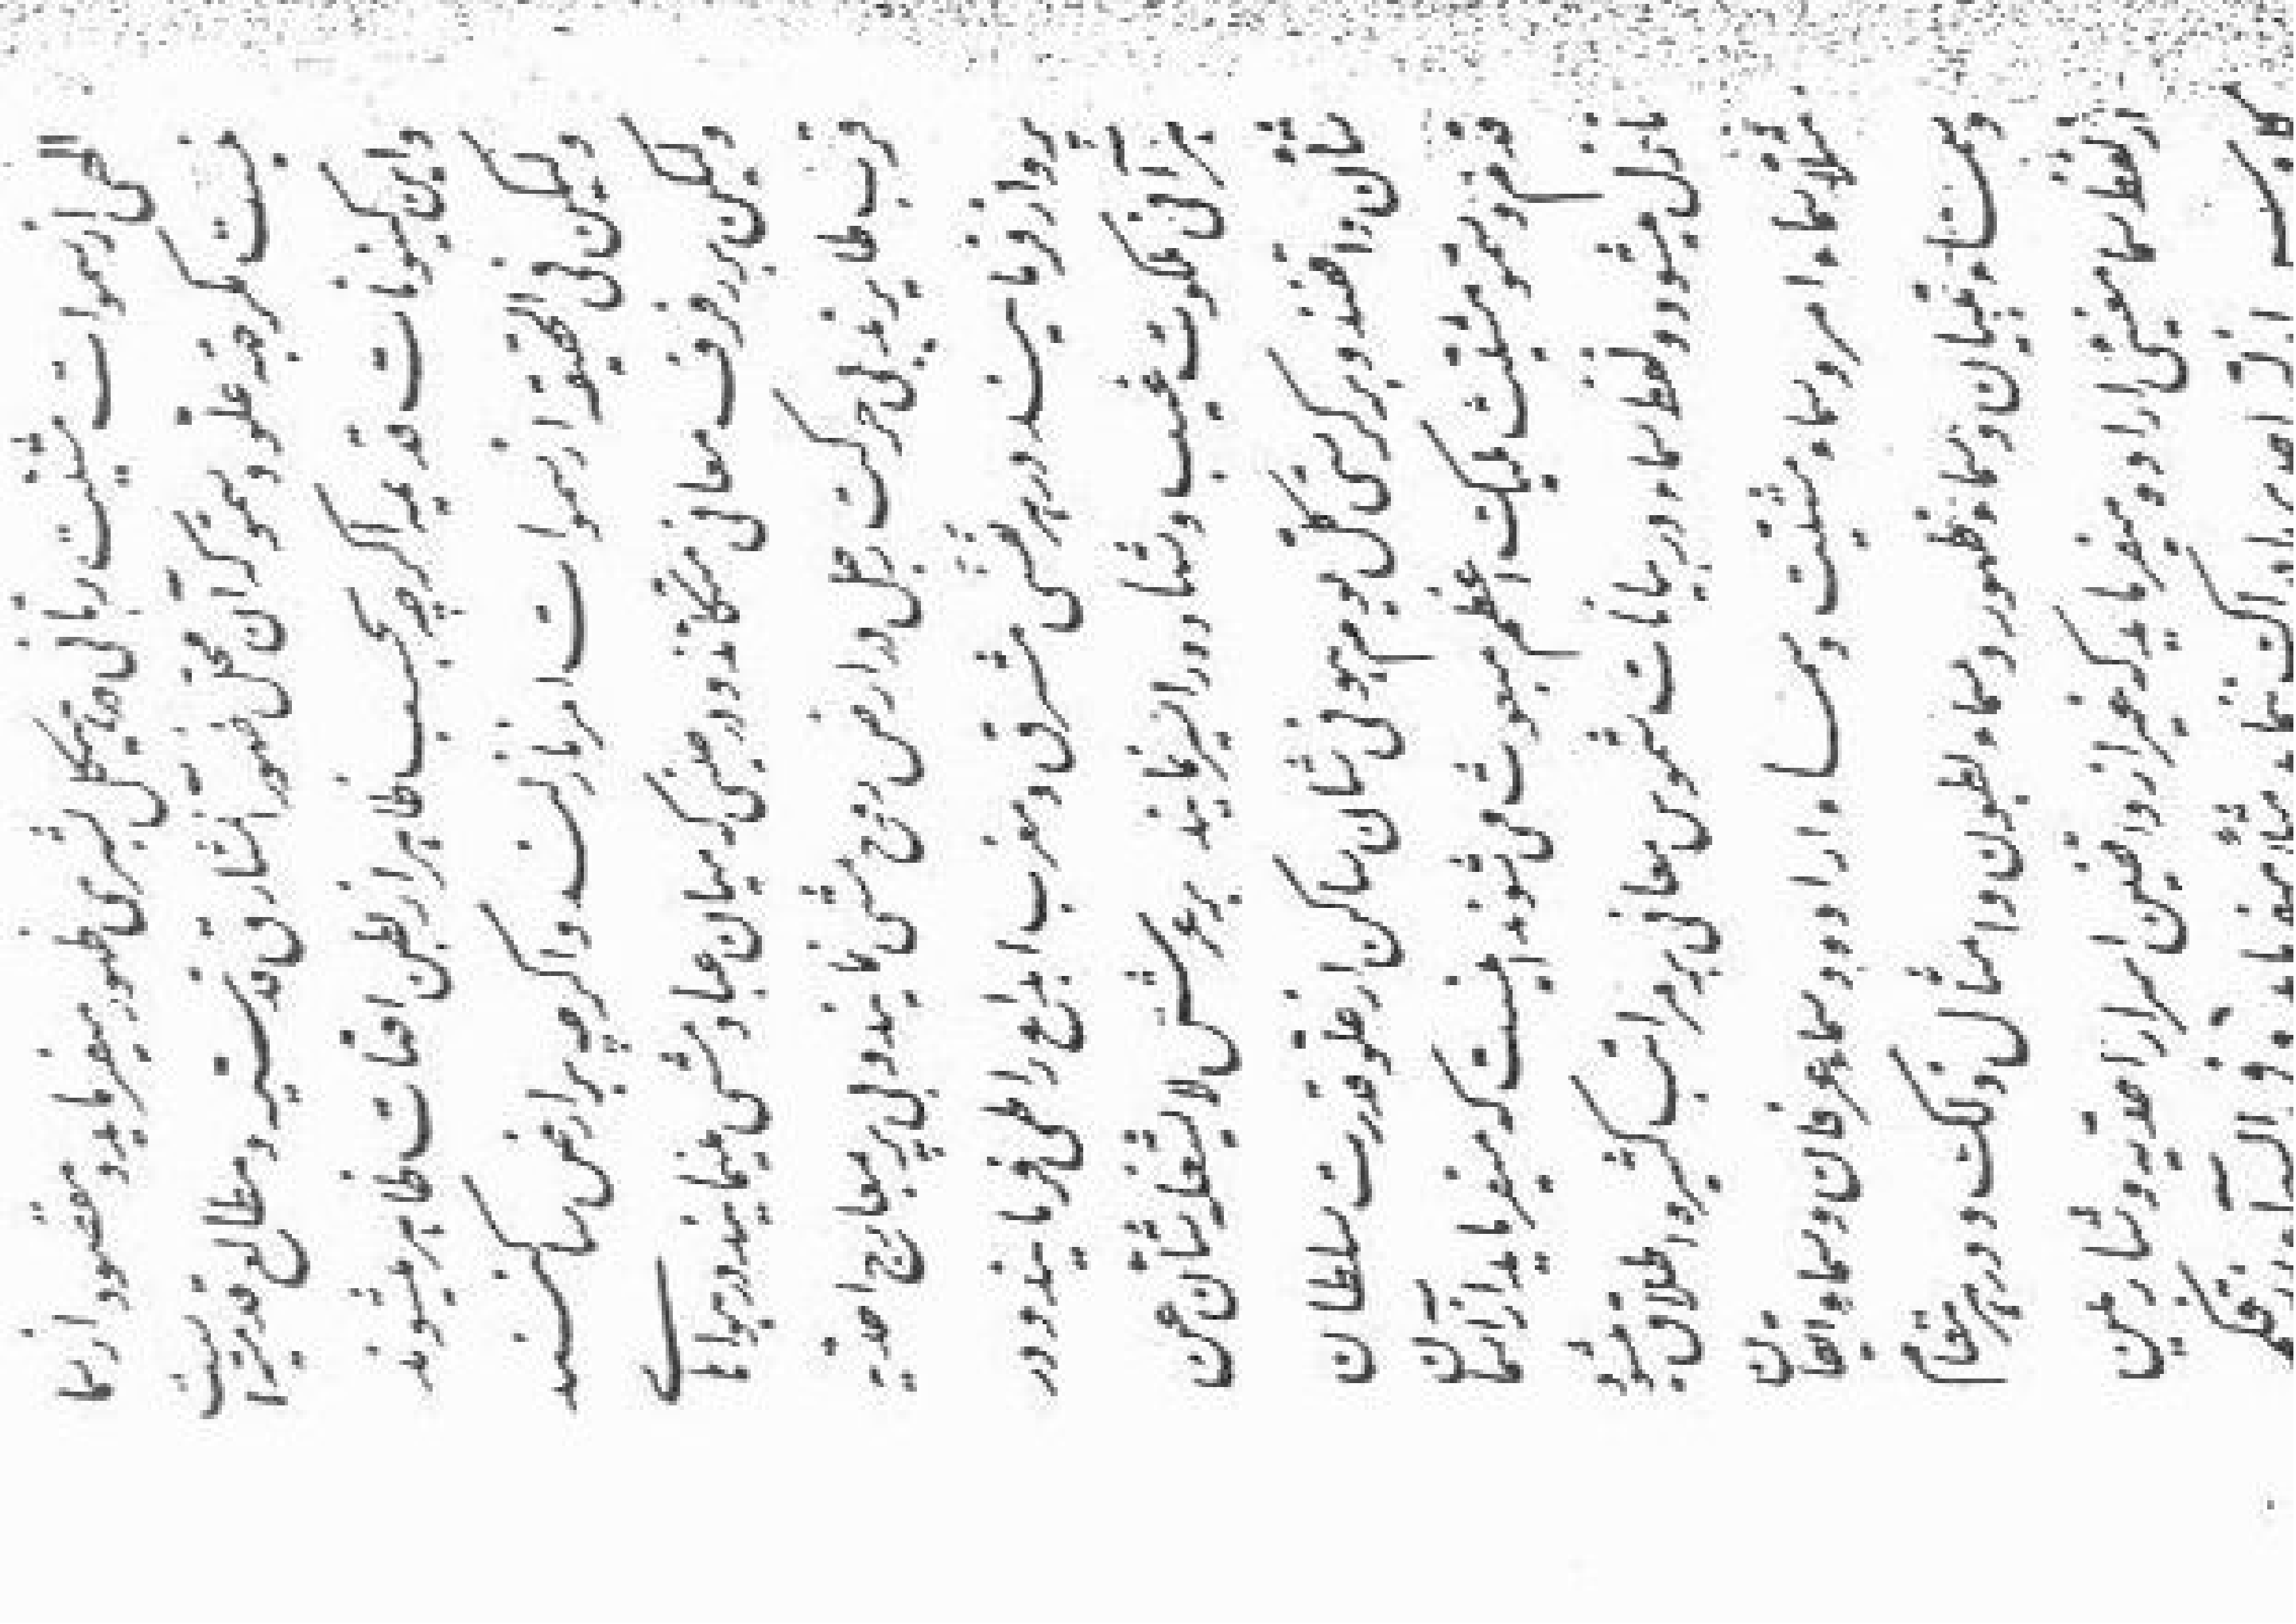 الهی از سموات مشیت ربانی در هیکل بشری ظهور میفرماید و مقصود از سماء
نیست مگر جهة علو و سمو که آن محل ظهور آن مشارق قدسیه و مطالع قدمیه است
و این کینونات قدیمه اگرچه بحسب ظاهر از بطن امهات ظاهر میشوند
ولیکن فی الحقیقه از سموات امر نازلند و اگرچه بر ارض ساکنند
ولیکن بر رفرف معانی متکأند و در حینی که میان عباد مشی مینمایند در هواهای
قرب طایرند بی حرکت رجل در ارض روح مشی نمایند و بی پر بمعارج احدیه
پرواز فرمایند در هر نفسی مشرق و مغرب ابداع را طی فرمایند و در
هر آنی ملکوت غیب و شهاده را سیر نمایند بر عرش لا یشغله شأن عن
شأن واقفند و بر کرسی کل یوم هو فی شأن ساکن از علو قدرت سلطان
قدم و سمو مشیت ملیک اعظم مبعوث می شوند اینست که میفرماید از آسمان
نازل میشود و لفظ سماء در بیانات شموس معانی بر مراتب کثیره اطلاق میشود
مثلا سماء امر و سماء مشیت و سماء اراده و سماء عرفان و سماء ایقان
و سماء تبیان و سماء ظهور و سماء بطون و امثال ذلک و در هر مقام
از لفظ سماء معنیی اراده میفرماید که غیر از واقفین اسرار احدیه و شاربین
کؤس ازلیه احدی ادراک ننماید مثلا میفرماید و فی السماء رزقکم